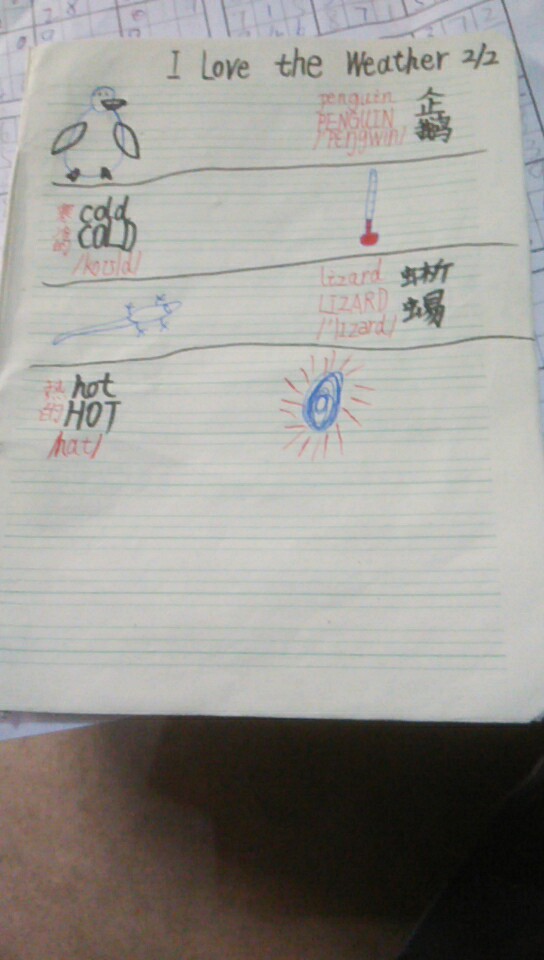 I Love the Weather 2/2
penguin
PENGUIN
/'pengwin/
企
鹅
寒
冷
的
cold
COLD
/koʊld/
lizard
LIZARD
/'lizard/
蜥
蜴
热
的
hot
HOT
/hat/